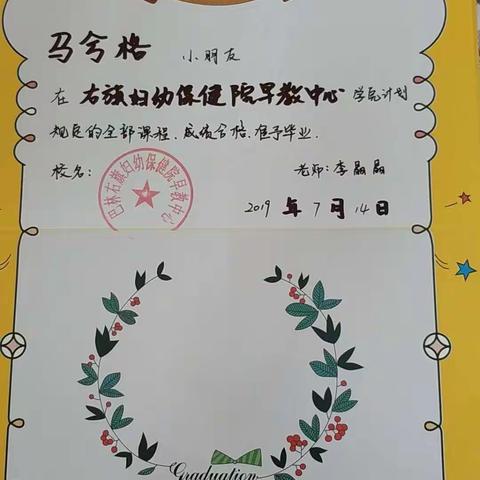 马兮格 小朋友
在 右旗妇幼保健院早教中心 学完计划
规定的全部课程、成绩合格、准予毕业.
校名: 老师: 李晶晶
巴林右旗妇幼保健院早教中心
2019 年 7 月 14 日
Graduation